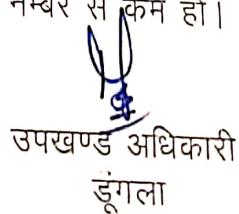 नम्बर से कम हो।
उपखण्ड अधिकारी
डूंगला